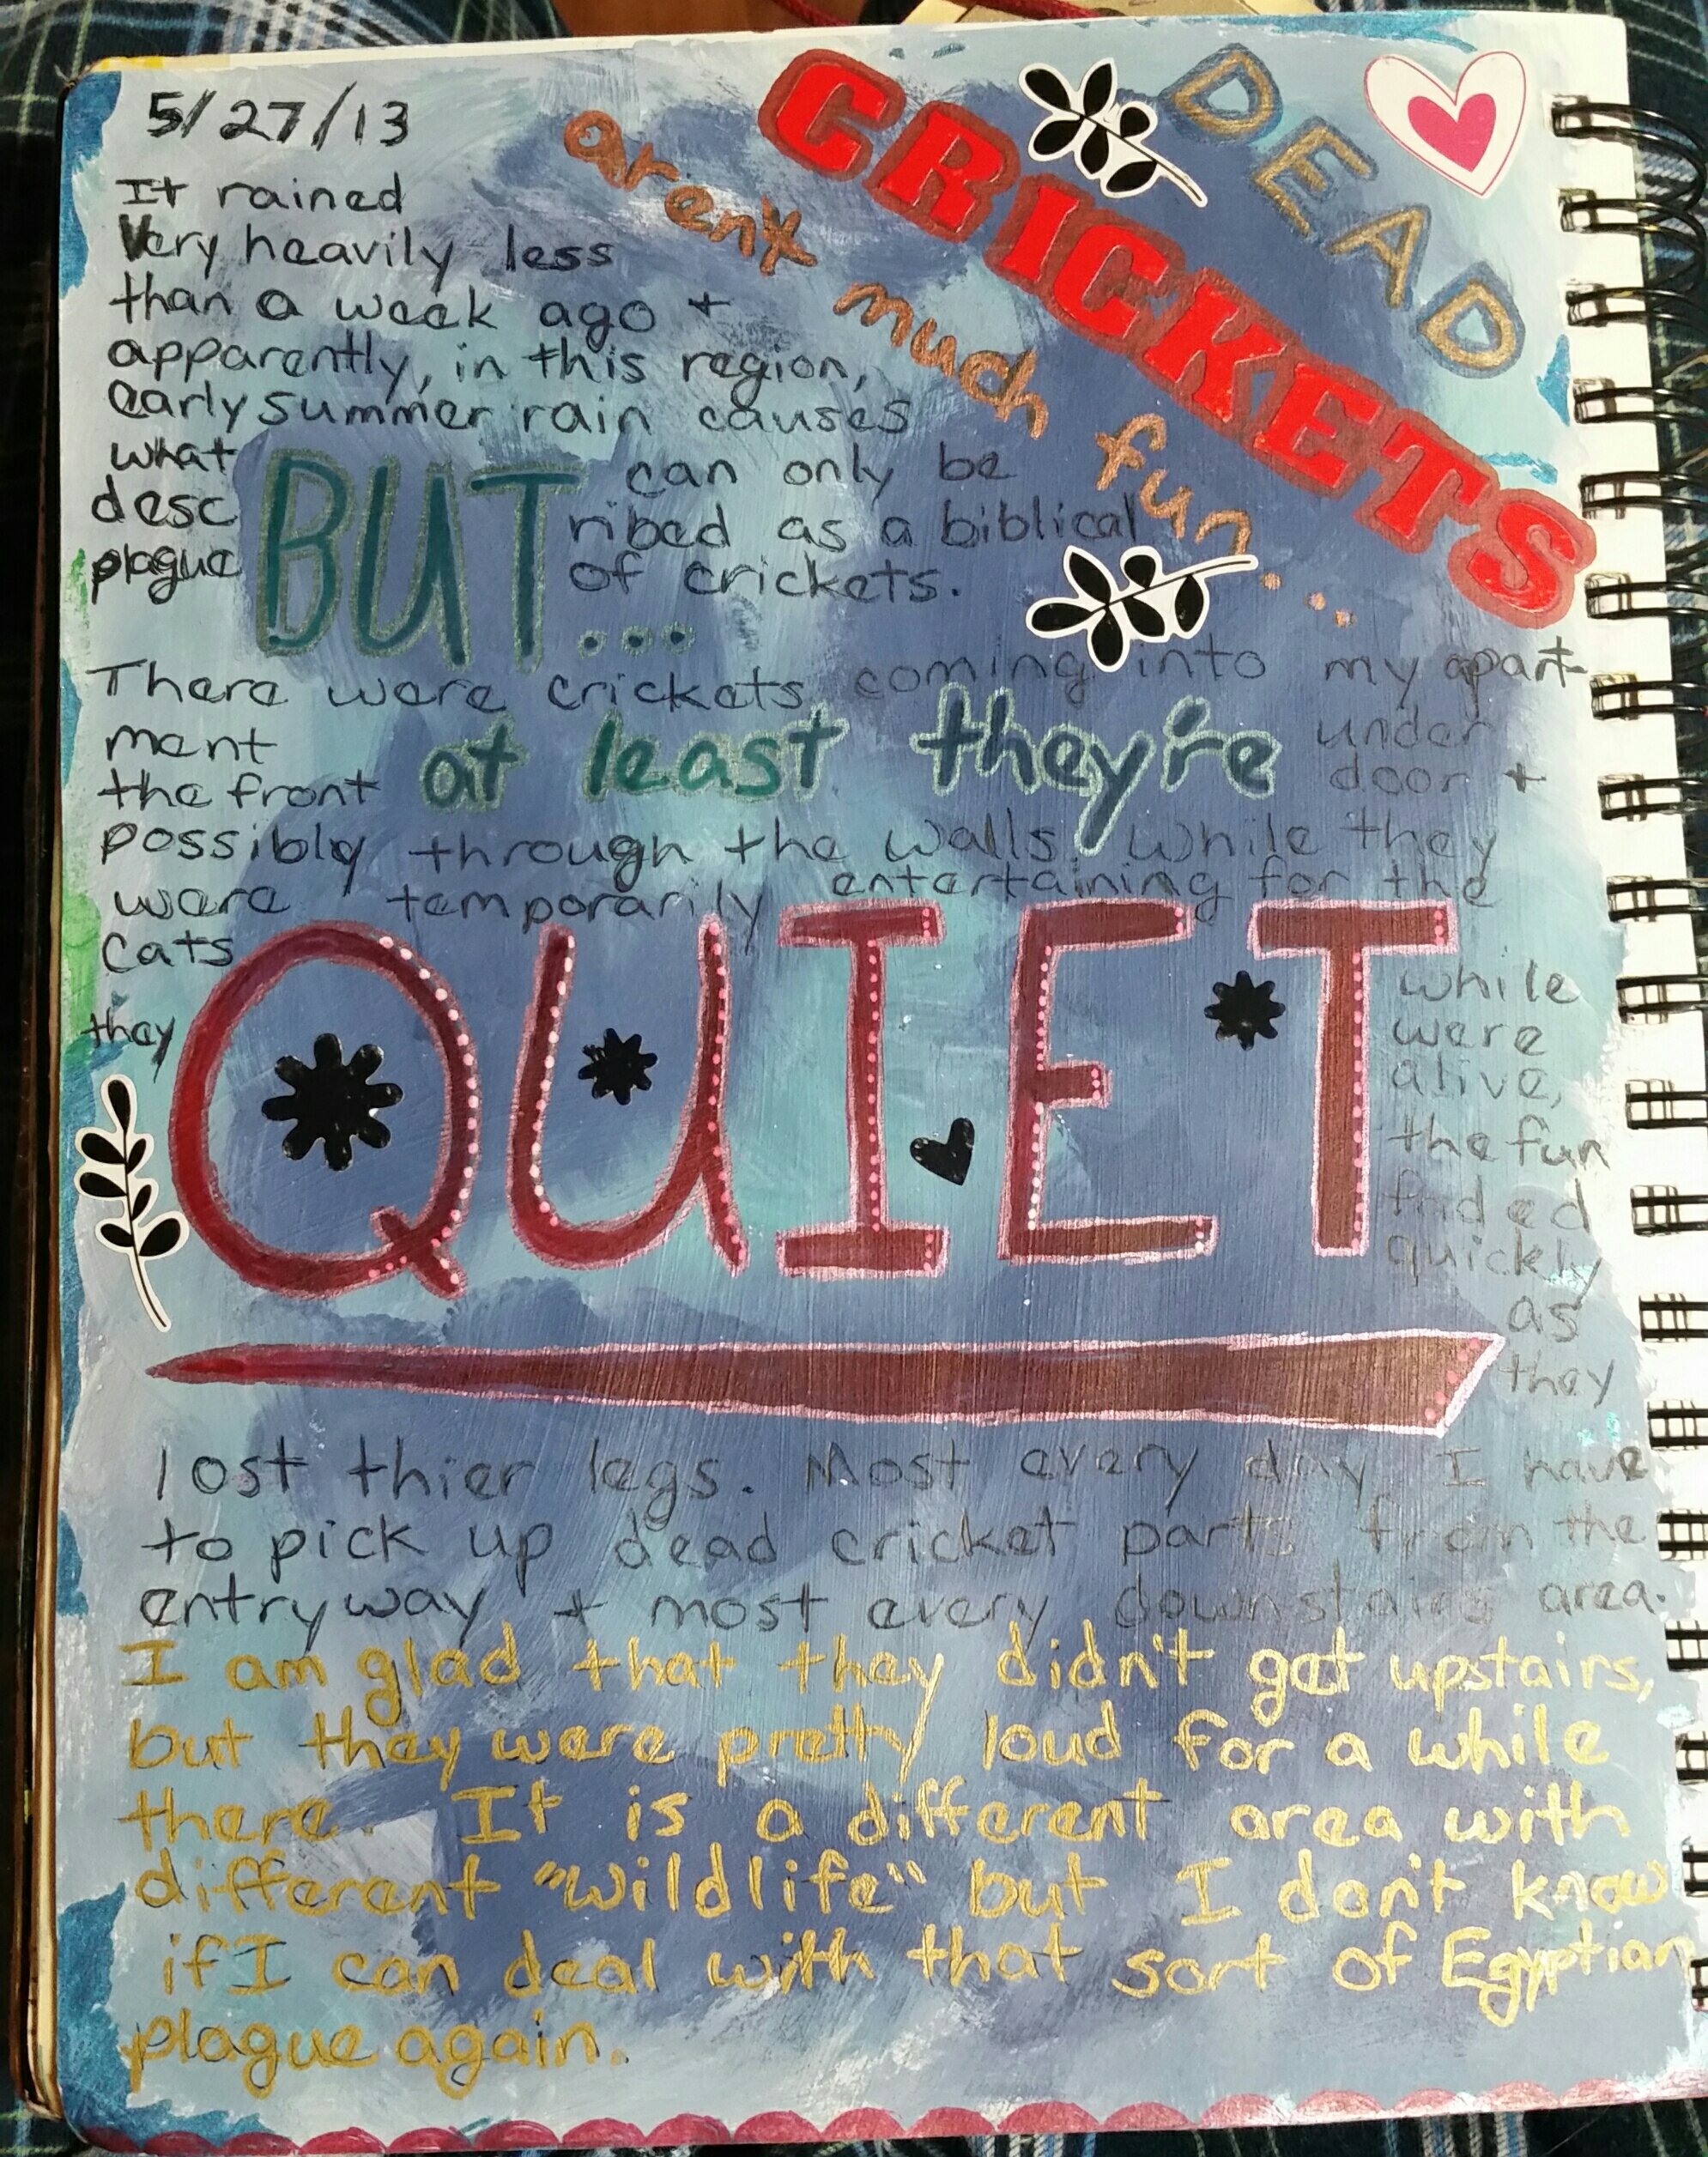 5/27/13
DEAD
CRICKETS
arent much fun...
It rained
Very heavily less
than a week ago +
apparently, in this region,
early summer rain causes
what can only be
desc ribed as a biblical
plague of crickets.
BUT...
There were crickets coming into my apart-
ment under
the front door +
at least they're
possibly through the walls. While they
were temporarily entertaining for the
cats while
they were
alive,
the fun
faded
quickly
as
they
QUIET
lost thier legs. Most every day I have
to pick up dead cricket parts from the
entryway + most every downstairs area.
I am glad that they didn't get upstairs,
but they were pretty loud for a while
there. It is a different area with
different "wildlife" but I don't know
if I can deal with that sort of Egyptian
plague again.